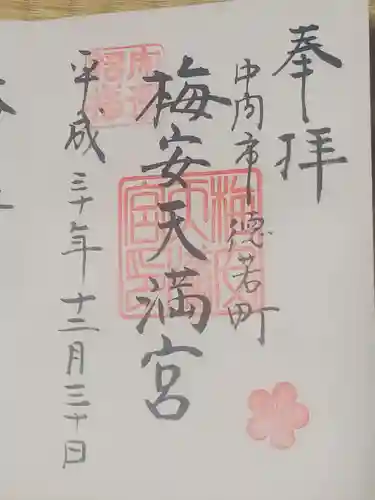 奉拝
中内市徳若町
梅安天満宮
平成三十年十二月三十日